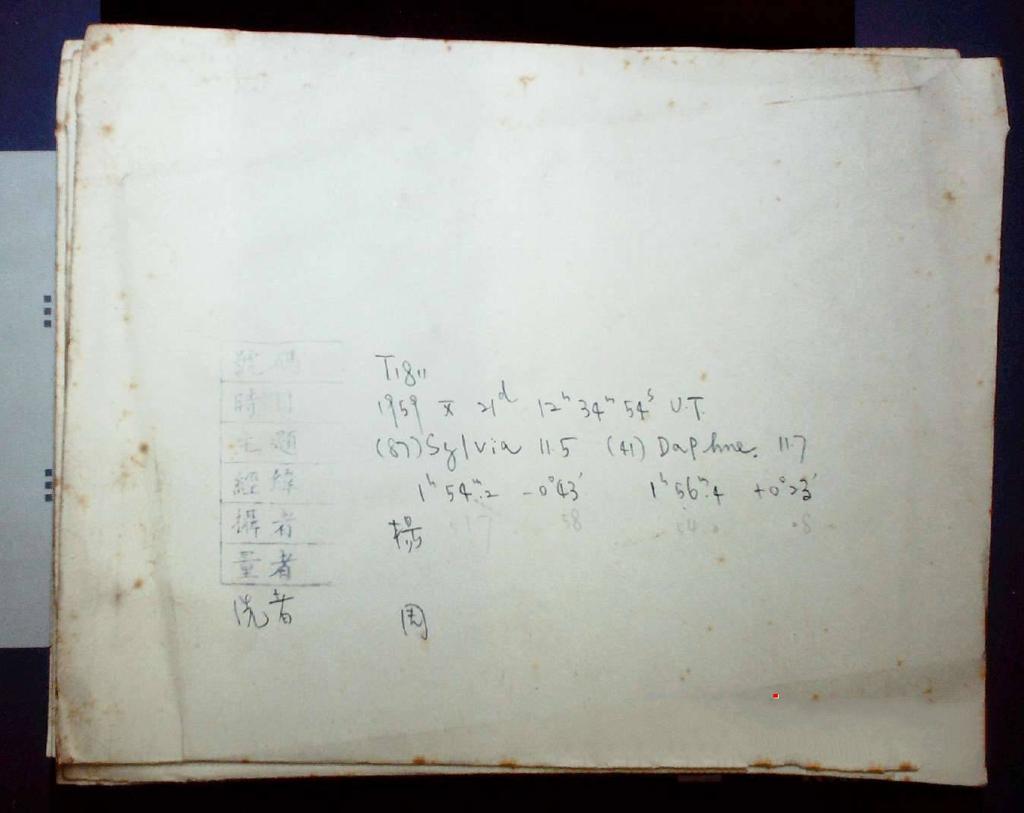 號碼 T1811
時間 1959 X 21d 12h 34m 54s U.T.
主題 (87) Sylvia 11.5 (41) Daphne. 11.7
經緯 1h 54m.2 -0°43' 1h 56m.4 +0°23'
攝者 楊 58
量者
洗者 周